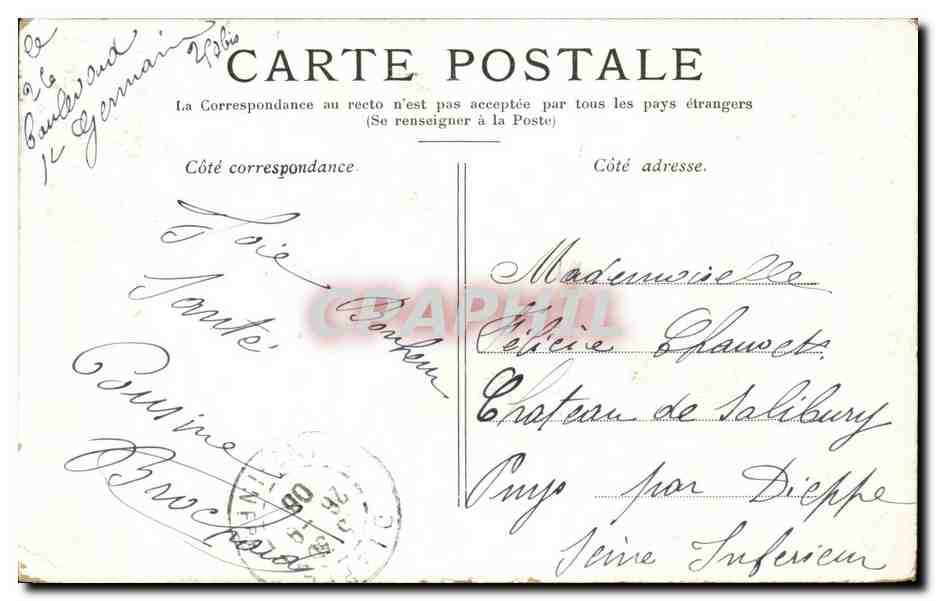 Boulevard
St Germain
CARTE POSTALE
La Correspondance au recto n'est pas acceptée par tous les pays étrangers
(Se renseigner à la Poste)
Côté correspondance.
Côté adresse.
Joie
Santé Bonheur
Cousine
Brochard
Mademoiselle
Félicie
Chateau de Salibury
Puys par Dieppe
Seine Inferieur
CPAPHIL